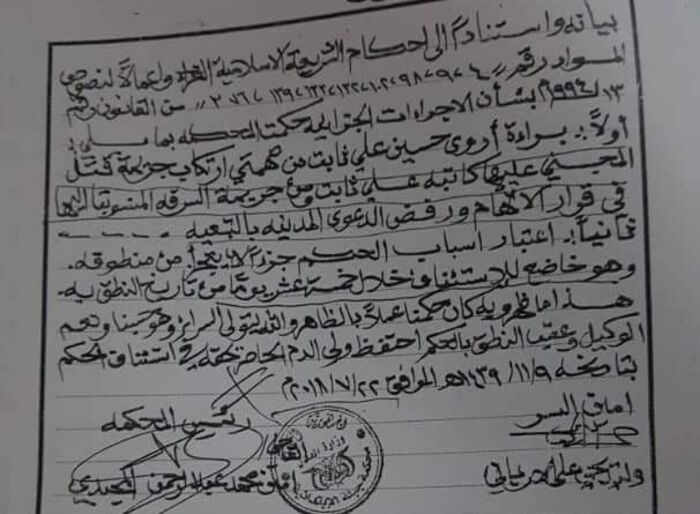 بيانه واستناداً الى احكام الشريعة الاسلامية الغراء واعمالاً لنصوص
المواد رقم
١٣/١٩٩٤م بشأن الاجراءات الجزائية حكمت المحكمه بما يلي :
أولاً :ـ براءة أروى حسين علي ثابت من تهمتي ارتكاب جريمة قتل
المجني عليها كاتبه علي ثابت ومن جريمة السرقه المنسوبتا اليها
في قرار الاتهام ورفض الدعوى المدنيه بالتبعيه
ثانياً :ـ اعتبار اسباب الحكم جزء لا يتجزأ من منطوقه .
وهو خاضع للاستئناف خلال خمسة عشر يوماً من تاريخ النطق به .
هذا ما ظهر وبه كان حكمنا عملاً بالظاهر والله يتولى السرائر وهو حسبنا ونعم
الوكيل وعقب النطق بالحكم احتفظ ولي الدم الحاضر بحقه في استئناف الحكم
بتاريخه ٩/١١/١٤٣٩هـ الموافق ٢٢/٧/٢٠١٨م
امين السر
رئيس المحكمه
القاضي
محمد عبدالرحمن